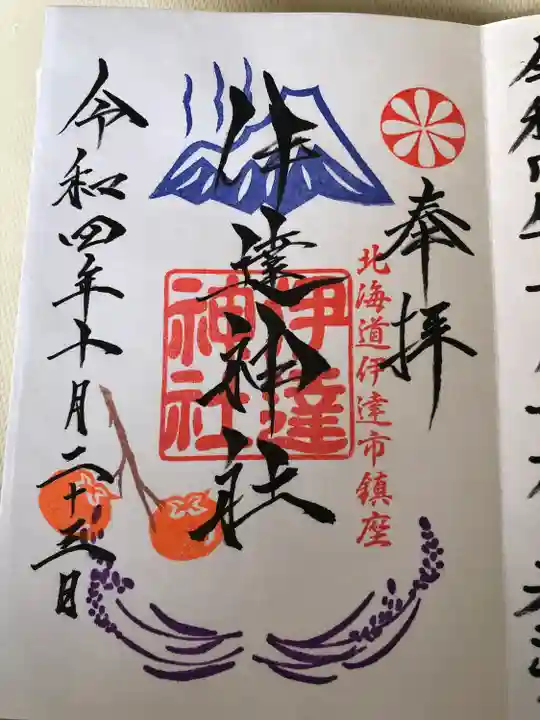 奉拝
北海道伊達市鎮座
伊達神社
伊達
神社
令和四年十月二十五日